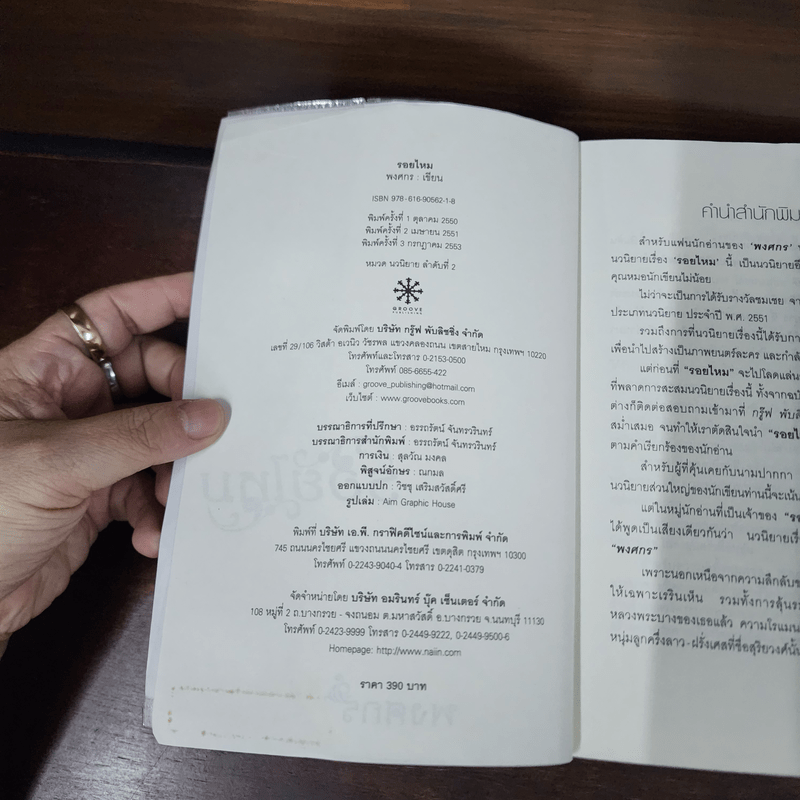 รอยไหม
พงศกร : เขียน
ISBN 978-616-90562-1-8
พิมพ์ครั้งที่ 1 ตุลาคม 2550
พิมพ์ครั้งที่ 2 เมษายน 2551
พิมพ์ครั้งที่ 3 กรกฎาคม 2553
หมวด นวนิยาย ลำดับที่ 2
GROOVE
PUBLISHING
จัดพิมพ์โดย บริษัท กรู๊ฟ พับลิชชิ่ง จำกัด
เลขที่ 29/106 วิสต้า อเวนิว วัชรพล แขวงคลองถนน เขตสายไหม กรุงเทพฯ 10220
โทรศัพท์และโทรสาร 0-2153-0500
โทรศัพท์ 085-6655-422
อีเมล์ : groove_publishing@hotmail.com
เว็บไซต์ : www.groovebooks.com
บรรณาธิการที่ปรึกษา : อรรถรัตน์ จันทรวรินทร์
บรรณาธิการสำนักพิมพ์ : อรรถรัตน์ จันทรวรินทร์
การเงิน : สุลวัณ มงคล
พิสูจน์อักษร : ณกมล
ออกแบบปก : วิชชุ เสริมสวัสดิ์ศรี
รูปเล่ม : Aim Graphic House
พิมพ์ที่ บริษัท เอ.พี. กราฟิคดีไซน์และการพิมพ์ จำกัด
745 ถนนนครไชยศรี แขวงถนนนครไชยศรี เขตดุสิต กรุงเทพฯ 10300
โทรศัพท์ 0-2243-9040-4 โทรสาร 0-2241-0379
จัดจำหน่ายโดย บริษัท อมรินทร์ บุ๊ค เซ็นเตอร์ จำกัด
108 หมู่ที่ 2 ถ.บางกรวย - จงถนอม ต.มหาสวัสดิ์ อ.บางกรวย จ.นนทบุรี 11130
โทรศัพท์ 0-2423-9999 โทรสาร 0-2449-9222, 0-2449-9500-6
Homepage: http://www.naiin.com
ราคา 390 บาท
คำนำสำนักพิม
สำหรับแฟนนักอ่านของ 'พงศกร'
นวนิยายเรื่อง 'รอยไหม' นี้ เป็นนวนิยายอี
คุณหมอนักเขียนไม่น้อย
ไม่ว่าจะเป็นการได้รับรางวัลชมเชย จา
ประเภทนวนิยาย ประจำปี พ.ศ. 2551
รวมถึงการที่นวนิยายเรื่องนี้ได้รับกา
เพื่อนำไปสร้างเป็นภาพยนตร์ละคร และกำลั
แต่ก่อนที่ "รอยไหม" จะไปโลดแล่น
ที่พลาดการสะสมนวนิยายเรื่องนี้ ทั้งจากฉบั
ต่างก็ติดต่อสอบถามเข้ามาที่ กรู๊ฟ พับลิ
สม่ำเสมอ จนทำให้เราตัดสินใจนำ "รอยไ
ตามคำเรียกร้องของนักอ่าน
สำหรับผู้ที่คุ้นเคยกับนามปากกา
นวนิยายส่วนใหญ่ของนักเขียนท่านนี้จะเน้น
แต่ในหมู่นักอ่านที่เป็นเจ้าของ "รอ
ได้พูดเป็นเสียงเดียวกันว่า นวนิยายเรื่
"พงศกร"
เพราะนอกเหนือจากความลึกลับข
ให้เฉพาะเรรินเห็น รวมทั้งการลุ้นระ
หลวงพระบางของเธอแล้ว ความโรแมน
หนุ่มลูกครึ่งลาว-ฝรั่งเศสที่ชื่อสุริยวงศ์นั้น